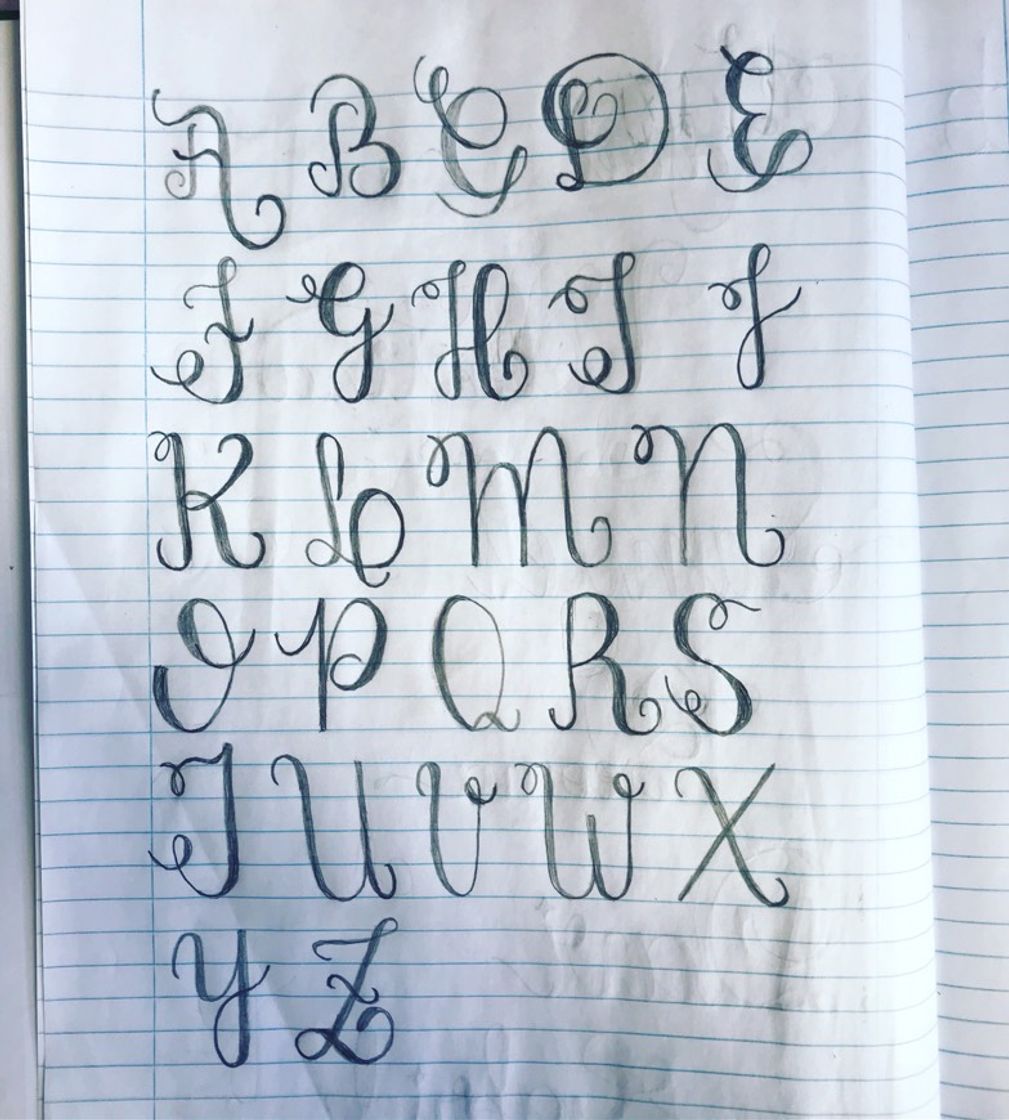 A B C D E
F G H I J
K L M N
O P Q R S
T U V W X
Y Z